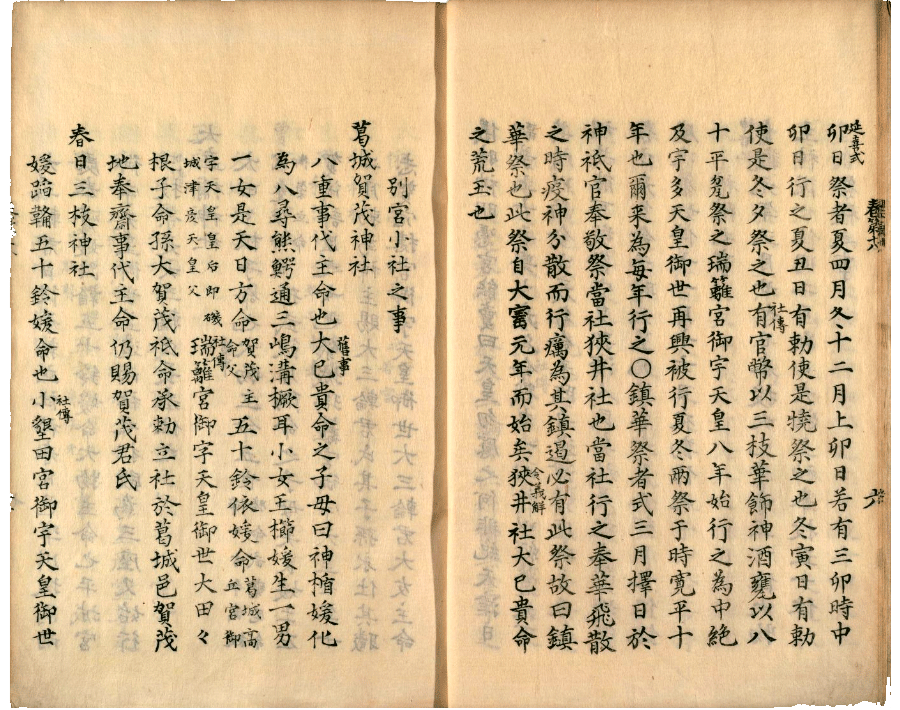 延喜式
卯日祭者夏四月冬十二月上卯日若有三卯時中
卯日行之夏丑日有勅使是境祭之也冬寅日有勅
使是冬夕祭之也社傳有官幣以三枝華飾神酒甕以八
十平瓮祭之瑞籬宮御宇天皇八年始行之為中絶
及宇多天皇御世再興被行夏冬兩祭于時寛平十
年也爾来為毎年行之〇鎮華祭者式三月擇日於
神祇官奉敬祭當社狹井社也當社行之奉華飛散
之時疫神分散而行癘為其鎮遏必有此祭故曰鎮
華祭也此祭自大寳元年而始矣令義解狹井社大己貴命
之荒玉也
別宮小社之事
葛城賀茂神社
八重事代主命也舊事大己貴命之子母曰神楯媛化
為八尋熊鰐通三嶋溝橛耳小女玉櫛媛生一男
一女是天日方命賀茂主命父五十鈴依媛命葛城高丘宮御
宇天皇后即磯城津彦天皇父社傳瑞籬宮御宇天皇御世大田々
根子命孫大賀茂祇命承勅立社於葛城邑賀茂
地奉齋事代主命仍賜賀茂君氏
春日三枝神社
媛蹈鞴五十鈴媛命也社傳小墾田宮御宇天皇御世